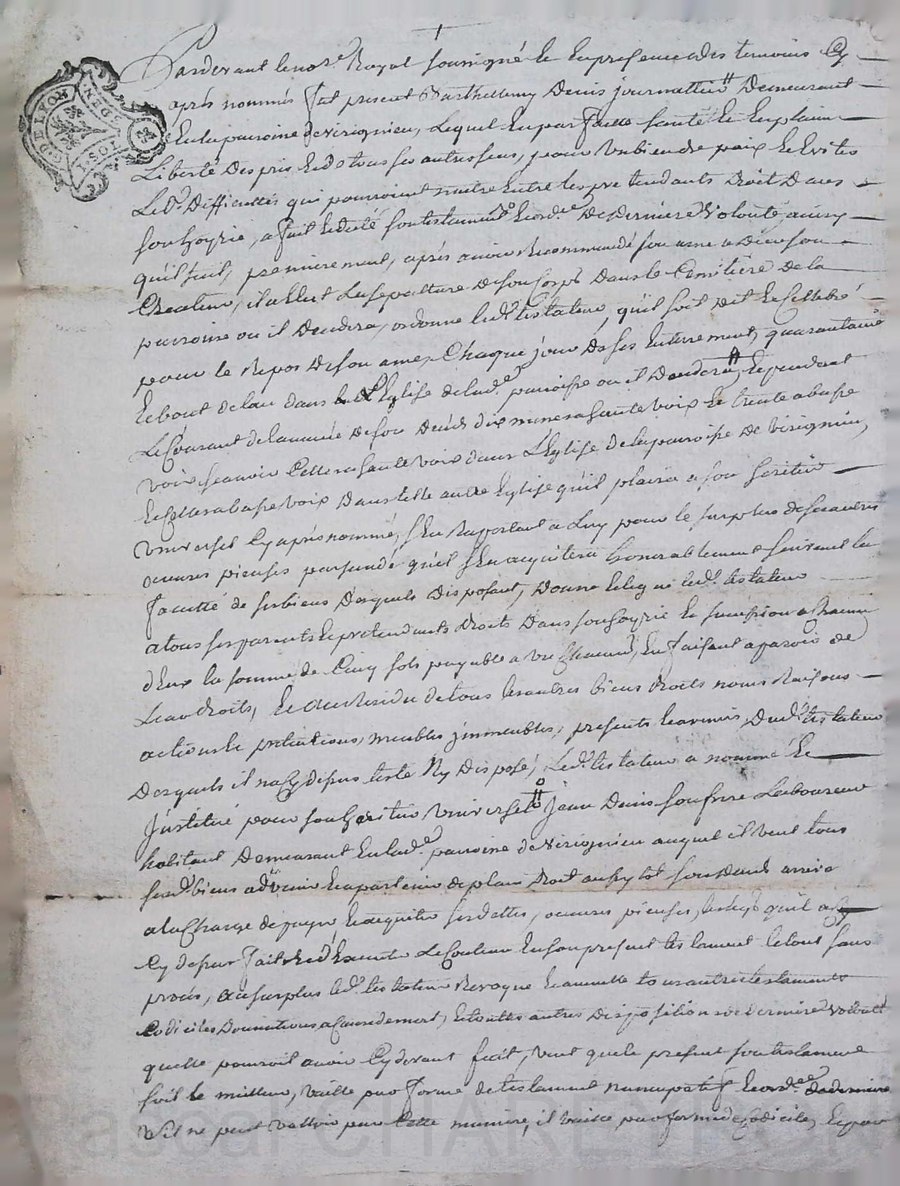 G. D. LYON
MOY. 2 S. DEN.
Pardevant le no.re Royal soussigné et en presence des temoins Cy
après nommés fut present Barthellemy Denis journallier Demeurant
En la paroisse de Virignieu, Lequel En parfaitte santé et En plaine
Liberté Desprit Et de tous ses autres sens, pour Un bien de paix Et Evitter
Les Difficultés qui pourroient naitre Entre les pretendants Droit Dans
son hoyrie, a fait Et dicté son testament Et ord.ce De Derniere Volonté, ainsy
quil suit, premierement, après avoir Recommandé son ame a Dieu son
Createur, il a Elut La sepulture De son corps Dans le Cemitière de la
parroisse ou il Decedera, ordonne led. testateur, quil soit dit Et Cellebré
pour le Repos De son ame, Chaque jour De ses Enterrement, quarantaine
Et bout de lan dans L'Eglise de lad. parroisse ou il Decedera Et pendant
Le Courant de lannée De son Decés dix messes a haute voix Et trente a basse
voix scavoir Celles a haute voix dans L'Eglise de la paroisse De Virignieu,
Et Celles a basse voix Dans telle autre Eglise quil plaira a son heritier
Universel Cy après nommé, s'En Raportant a Luy pour le surplus de ses autres
oeuvres pieuses persuadé qu'il s'En acquittera honorablement suivant la
faculté de ses biens Desquels Disposant, Donne Et Legue led. testateur
a tous ses parents Et pretendants droits Dans son hoyrie Et succession a Chacun
d'Eux la somme de Cinq sols payable a Un Chacun, En faisant aparoir de
Leur droits, Et Au Residu de tous les autres biens droits noms Raisons
actions Et pretentions, meubles jmmeubles, presents Et avenir, Dud. testateur
Desquels il na Cy depus testé Ny Disposé, Led. testateur a nommé Et
Jnstitué pour son heritier universel Jean Denis son frere Laboureur
habitant Demeurant En lad. paroisse de Virignieu auquel il veut tous
sesd. biens advenir Et apartenir de plain Droit aussytot son Decés arrivé
a la Charge de payer Et acquitter ses dettes, oeuvres pieuses, legs quil a
Cy depus fait Et d'Executer Le Contenu En son present testament Le tout sans
procés, Au surplus led. testateur Revoque Et annulle tous autres testaments
Codiciles Donnations a Cause de mort, Et touttes autres Dispositions de derniere volonté
quelle pourroit avoir Cy devant fait, veut que le present son testament
soit le meilleur, vaille par forme de testament nuncupatif Et ord.ce de derniere
s'il ne peut valloir par Cette maniere, il vaille par forme de Codicile, Et par
Pascal CHAREYRON